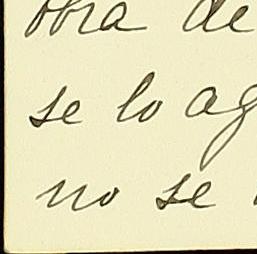 obra de
se lo ag
no se